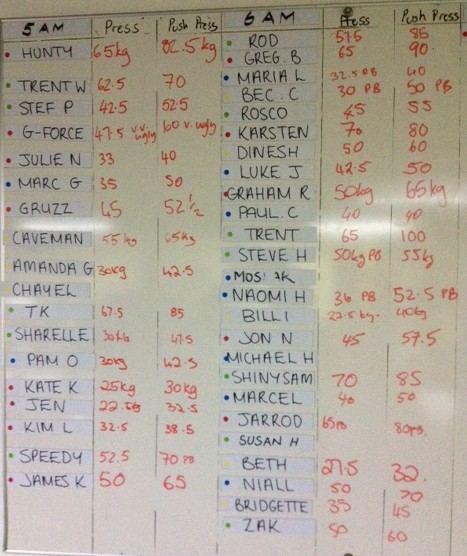 5 AM Press Push Press
HUNTY 65kg 82.5kg
TRENT W 62.5 70
STEF P 42.5 52.5
G-FORCE 47.5 v.v. ugly 60 v. ugly
JULIE N 33 40
MARC G 35 50
GRUZZ 45 52 1/2
CAVEMAN 55kg 65kg
AMANDA G 30kg 42.5
CHAYEL
TK 67.5 85
SHARELLE 30kg 47.5
PAM O 30kg 42.5
KATE K 25kg 30kg
JEN 22.5kg 32.5
KIM L 32.5 38.5
SPEEDY 52.5 70 PB
JAMES K 50 65
6 AM Press Push Press
ROD 57.5 85
GREG. B 65 90
MARIA L 32.5 PB 40
BEC. C 30 PB 50 PB
ROSCO 45 55
KARSTEN 70 80
DINESH 50 60
LUKE J 42.5 50
GRAHAM R 50kg 65kg
PAUL. C 40 40
TRENT 65 100
STEVE H 50kg PB 55kg
NAOMI H 36 PB 52.5 PB
BILLI 22.5kg 40kg
JON N 45 57.5
MICHAEL H
SHINY SAM 70 85
MARCEL 40 50
JARROD 65PB 80PB.
SUSAN H
BETH 27.5 32.
NIALL 50 70
BRIDGETTE 35 45
ZAK 50 60